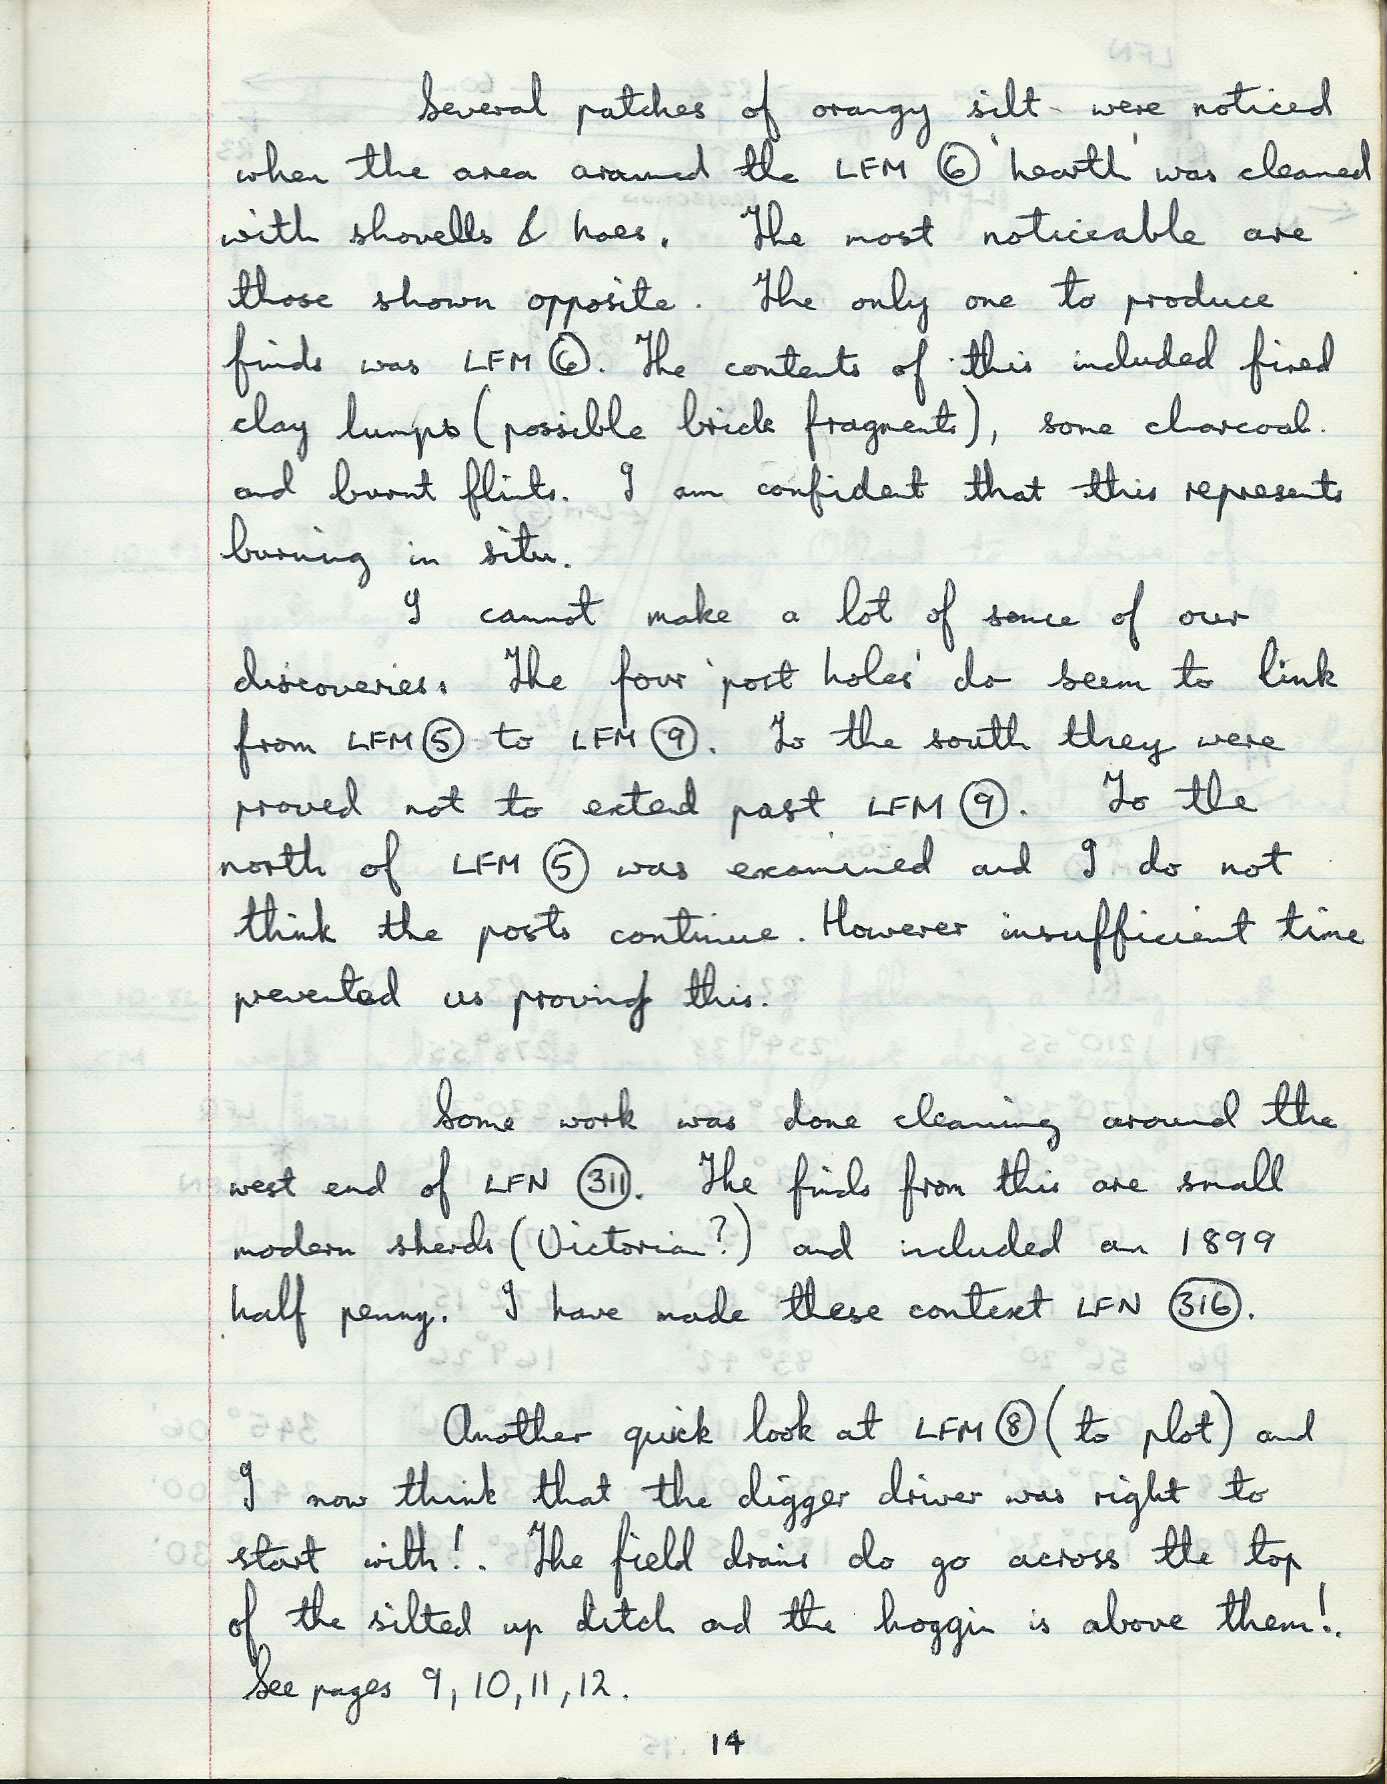 Several patches of orangy silt were noticed
when the area around the LFM ⑥ 'hearth' was cleaned
with shovells & hoes. The most noticeable are
those shown opposite. The only one to produce
finds was LFM ⑥. The contents of this included fired
clay lumps (possible brick fragments), some charcoal
and burnt flints. I am confident that this represents
burning in situ.
I cannot make a lot of sence of our
discoveries. The four 'post holes' do seem to link
from LFM ⑤ to LFM ⑨. To the south they were
proved not to extend past LFM ⑨. To the
north of LFM ⑤ was examined and I do not
think the posts continue. However insufficient time
prevented us proving this.
Some work was done cleaning around the
west end of LFN (311). The finds from this are small
modern sherds (Victorian?) and included an 1899
half penny. I have made these context LFN (316).
Another quick look at LFM ⑧ (to plot) and
I now think that the digger driver was right to
start with!. The field drains do go across the top
of the silted up ditch and the hoggin is above them!.
See pages 9, 10, 11, 12.
14